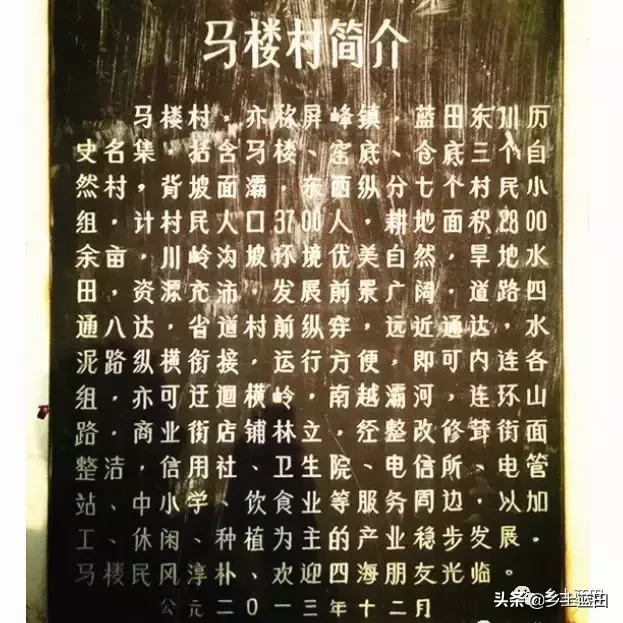 马楼村简介
马楼村，亦称屏峰镇，蓝田东川历
史名集，括含马楼、窑底、仓底三个自
然村，背坡面灞，东西纵分七个村民小
组，计村民人口3700人，耕地面积2800
余亩，川岭沟坡环境优美自然，旱地水
田，资源充沛，发展前景广阔，道路四
通八达，省道村前纵穿，远近通达，水
泥路纵横衔接，运行方便，即可内连各
组，亦可迂迴横岭，南越灞河，连环山
路，商业街店铺林立，经整改修葺街面
整洁，信用社、卫生院、电信所、电管
站、中小学、饮食业等服务周边，以加
工、休闲、种植为主的产业稳步发展。
马楼民风淳朴、欢迎四海朋友光临。
公元二0一三年十二月
头条@乡土蓝田
乡土蓝田